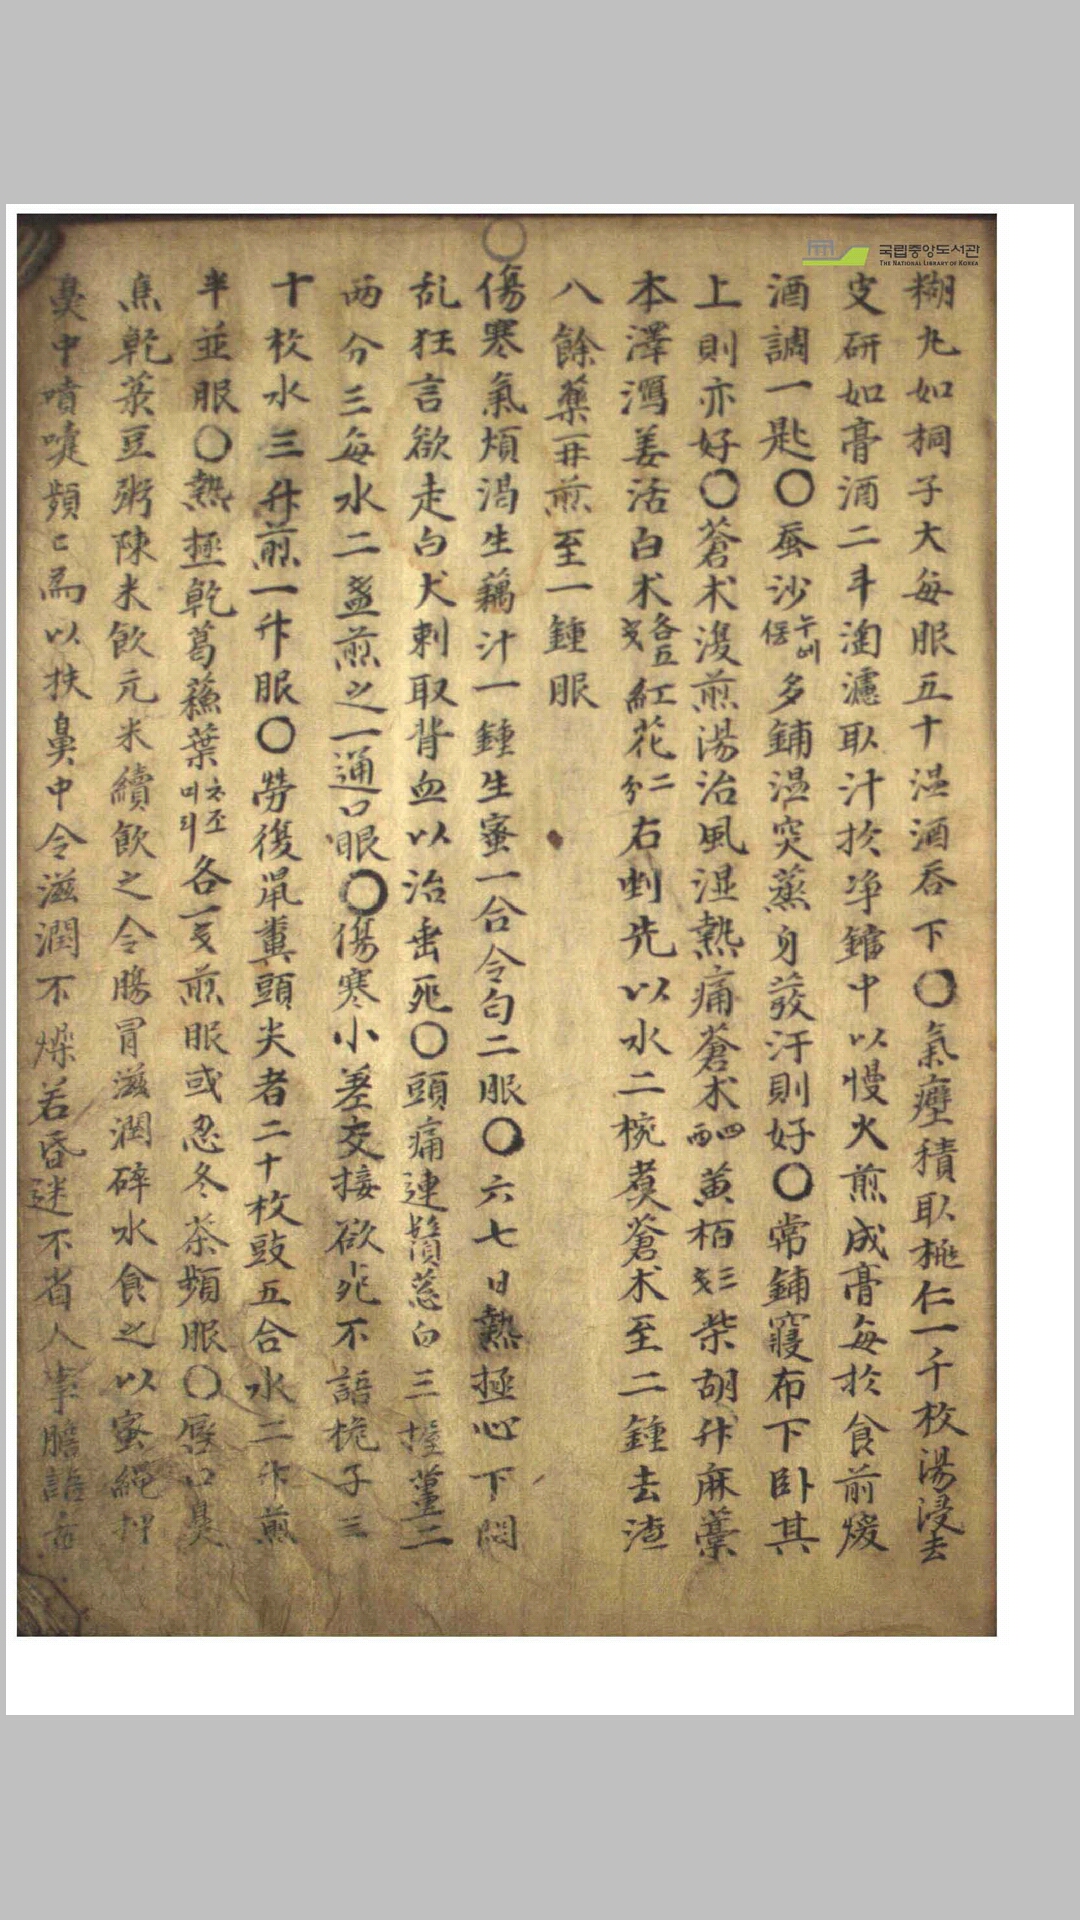 국립중앙도서관
THE NATIONAL LIBRARY OF KOREA
糊丸如桐子大每服五十溫酒呑下〇氣癦積取桃仁一千枚湯浸去
皮研如膏酒二斗淘濾取汁扵净鐺中以慢火煎成膏每扵食前煖
酒調一匙〇蚕沙누에多鋪溫突蒸身發汗則好〇常鋪寢布下卧其
上則亦好〇蒼朮濃煎湯治風濕熱痛蒼朮四両黄栢三戔柴胡升麻藁
本澤瀉羌活白朮各五戔紅花二分右剉先以水二椀煑蒼朮至二鍾去渣
入餘藥再煎至一鍾服
〇傷寒氣煩渴生藕汁一鍾生蜜一合令匀二服〇六七日熱極心下悶
乱狂言欲走白犬刺取背血以治垂死〇頭痛連鬚葱白三握薑二
両分三每水二盞煎之一通口服〇傷寒小差交接欲死不語梔子三
十枚水三升煎一升服〇勞復鼠糞頭尖者二十枚豉五合水二升煎
半並服〇熱極乾葛蘓葉各一戔煎服或忍冬茶頻服〇唇口臭
焦乾菉豆粥陳米飮元米續飮之令腸胃滋潤碎水食之以蜜繩押
鼻中噴嚏頻〻為以扶鼻中令滋潤不燥若昏迷不省人事